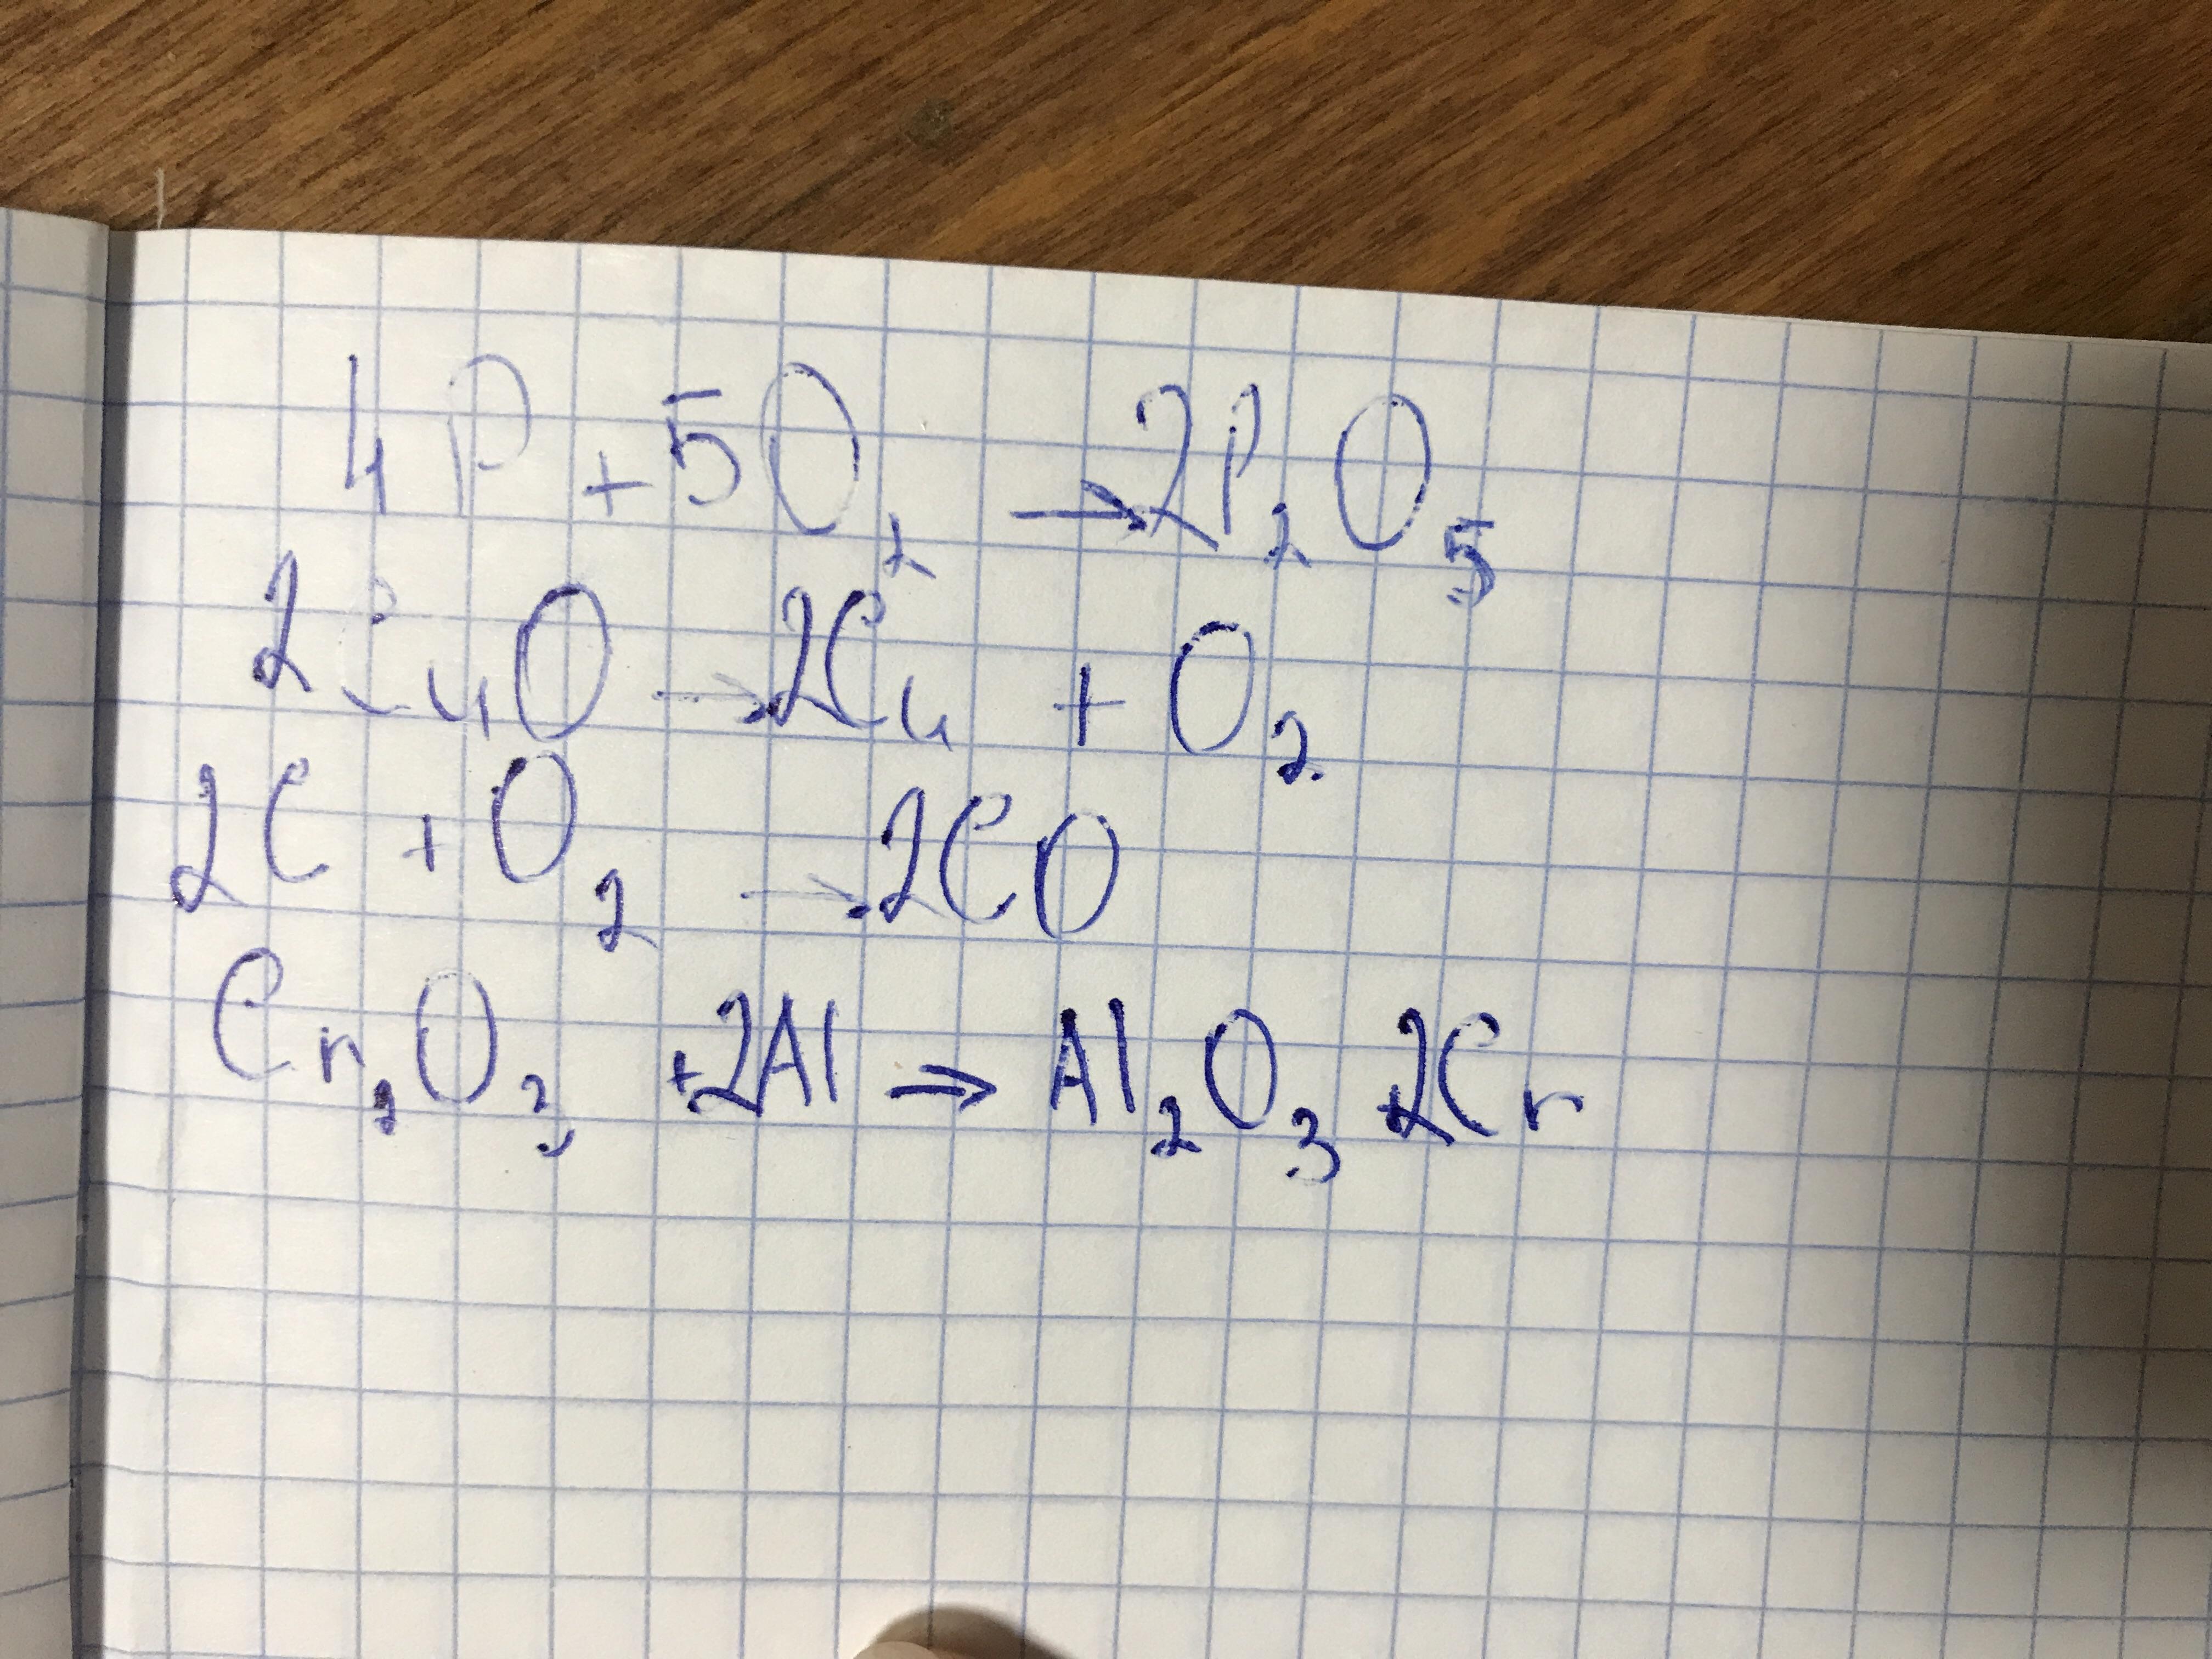 4P + 5O₂ → 2P₂O₅
2CuO → 2Cu + O₂
2C + O₂ → 2CO
Cr₂O₃ + 2Al → Al₂O₃ 2Cr